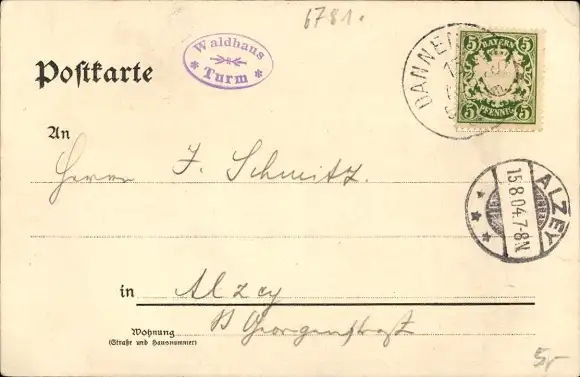 6781.
Waldhaus
Turm
Postkarte
DANNEN
BAYERN
5 5
5 PFENNIG 5
An
Herrn J. Schmitz.
ALZEY
15.8.04.7-8N
in Alzey
Georgenstrasse
Wohnung
(Straße und Hausnummer)
5,-